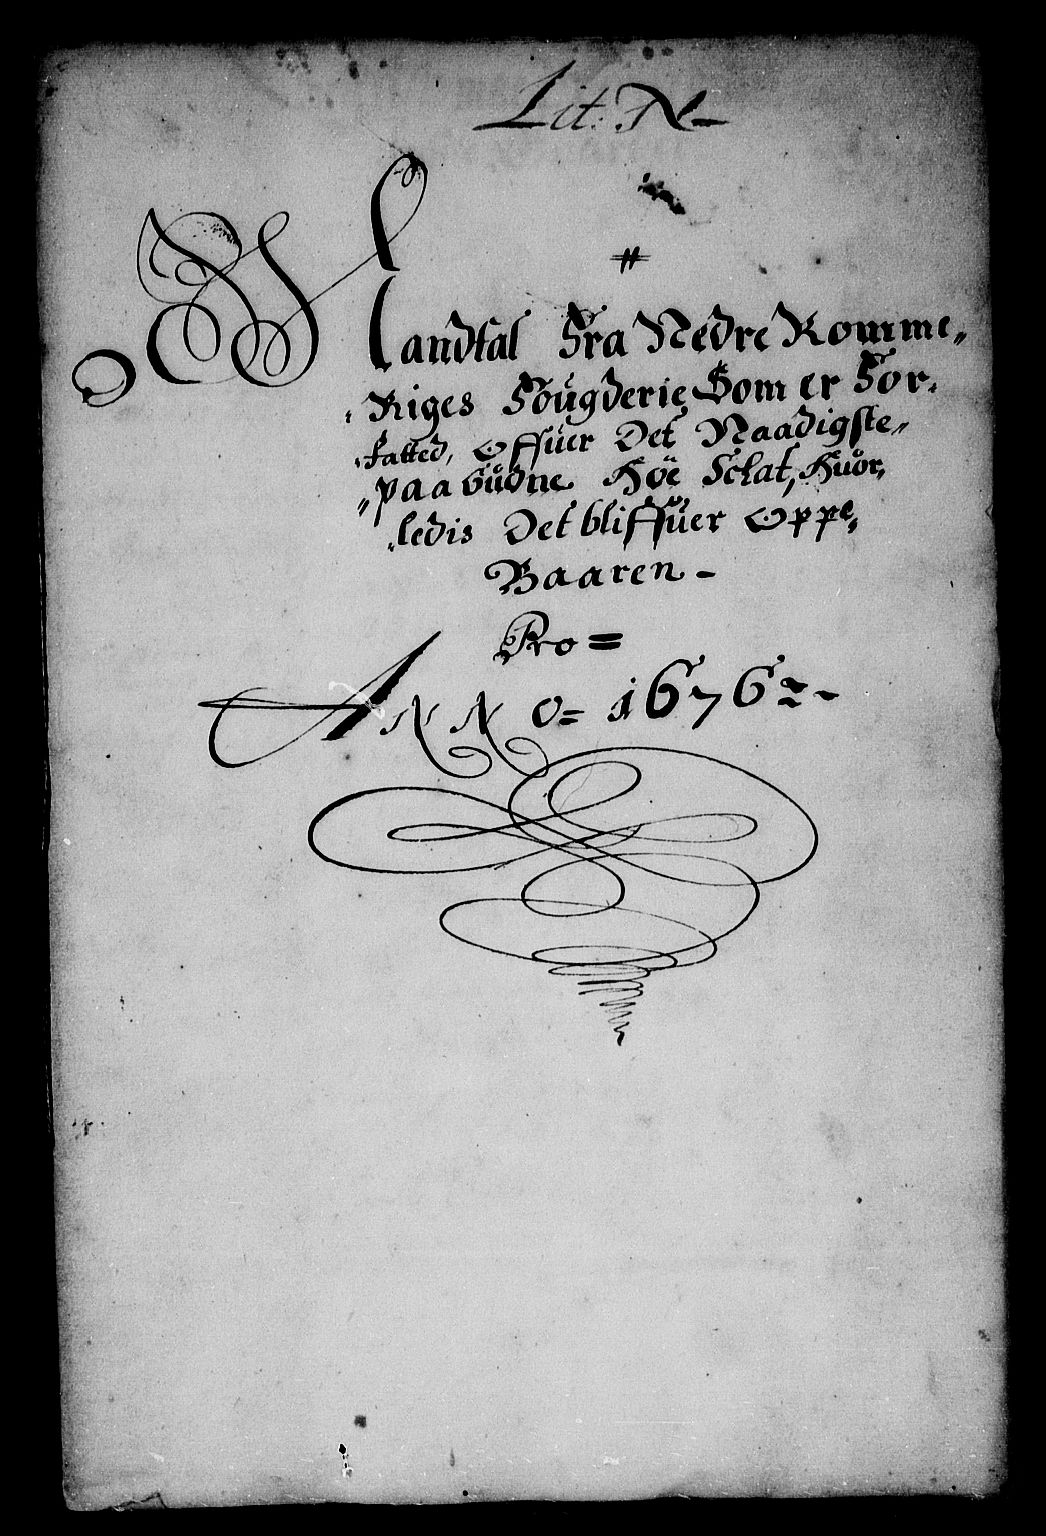 Lit: N
Mandtal Fra Nedre Romme„
Riges Fougderie Som er For„
fatted, Offuer Det Naadigste„
„paa budne Höe Schat, Huor„
ledis Det bliffuer Oppe„
Baaren –
Pro =
ANNO = 1676 –